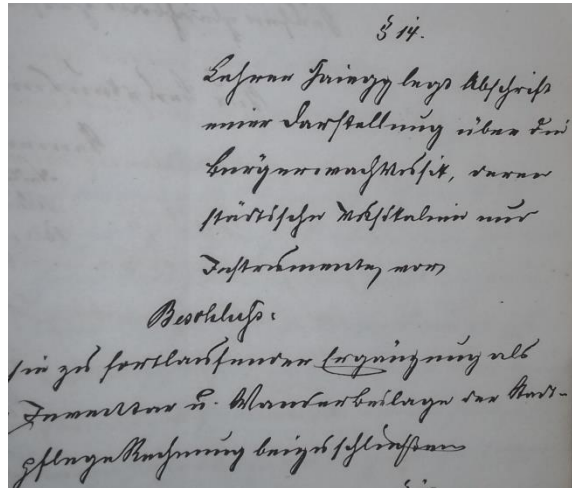 § 14.
Lehrer Haiegg legt Abschrift
einer Darstellung über die
Bürgerwachtmusik, deren
städtische Musikalien und
Instrumente, vor
Beschluß:
sie zu fortlaufender Ergänzung als
Inventar u. Wanderbeilage der Stadt-
pflege Rechnung beizuschließen